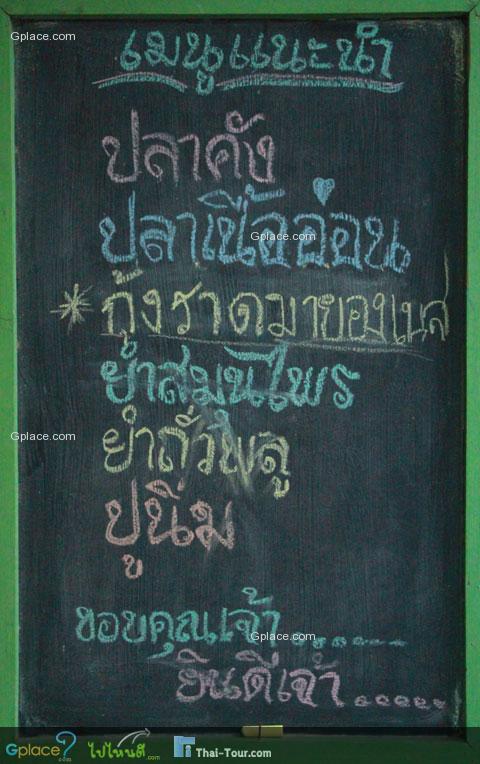 Gplace.com
Gplace.com
เมนูแนะนำ
ปลาคัง
ปลาเนื้ออ่อน
Gplace.com
* กุ้งราดมายองเนส
ยำสมุนไพร
Gplace.com
ยำถั่วพลู
ปูนิ่ม
ขอบคุณเจ้า......
Gplace.com
ยินดีเจ้า......
Gplace?.com ไปไหนดี.com Thai-Tour.com